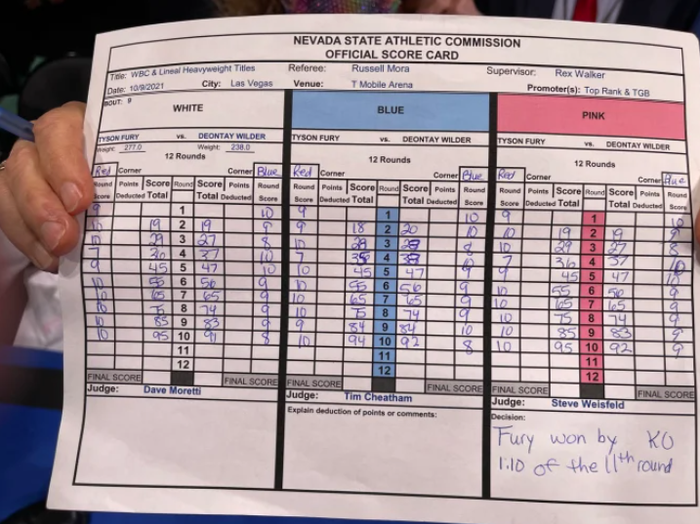 NEVADA STATE ATHLETIC COMMISSION
OFFICIAL SCORE CARD
Title: WBC & Lineal Heavyweight Titles Referee: Russell Mora Supervisor: Rex Walker
Date: 10/9/2021 City: Las Vegas Venue: T Mobile Arena Promoter(s): Top Rank & TGB
BOUT: 9
WHITE BLUE PINK
TYSON FURY vs. DEONTAY WILDER TYSON FURY vs. DEONTAY WILDER TYSON FURY vs. DEONTAY WILDER
Weight: 277.0 Weight: 238.0
12 Rounds 12 Rounds 12 Rounds
Red Corner Corner Blue Red Corner Corner Blue Red Corner Corner Blue
Round Points Score Round Score Points Round Round Points Score Round Score Points Round Round Points Score Round Score Points Round
Score Deducted Total Total Deducted Score Score Deducted Total Total Deducted Score Score Deducted Total Total Deducted Score
9 1 10 9 1 10 9 1 10
10 19 2 19 9 9 18 2 20 10 10 19 2 19
10 29 3 27 8 10 3 8 10 29 3 27 8
7 36 4 37 10 7 4 7 36 4 37 10
9 45 5 47 10 45 5 47 9 45 5 47 10
10 55 6 56 9 10 55 6 56 9 10 55 6 56 9
10 65 7 65 9 10 65 7 65 9 10 65 7 65 9
10 75 8 74 9 10 75 8 74 9 10 75 8 74 9
10 85 9 83 9 9 84 9 84 10 10 85 9 83 9
10 95 10 91 8 10 94 10 92 8 10 95 10 92 9
11 11 11
12 12 12
FINAL SCORE FINAL SCORE FINAL SCORE FINAL SCORE FINAL SCORE FINAL SCORE
Judge: Dave Moretti Judge: Tim Cheatham Judge: Steve Weisfeld
Explain deduction of points or comments: Decision:
Fury won by KO
1:10 of the 11th round